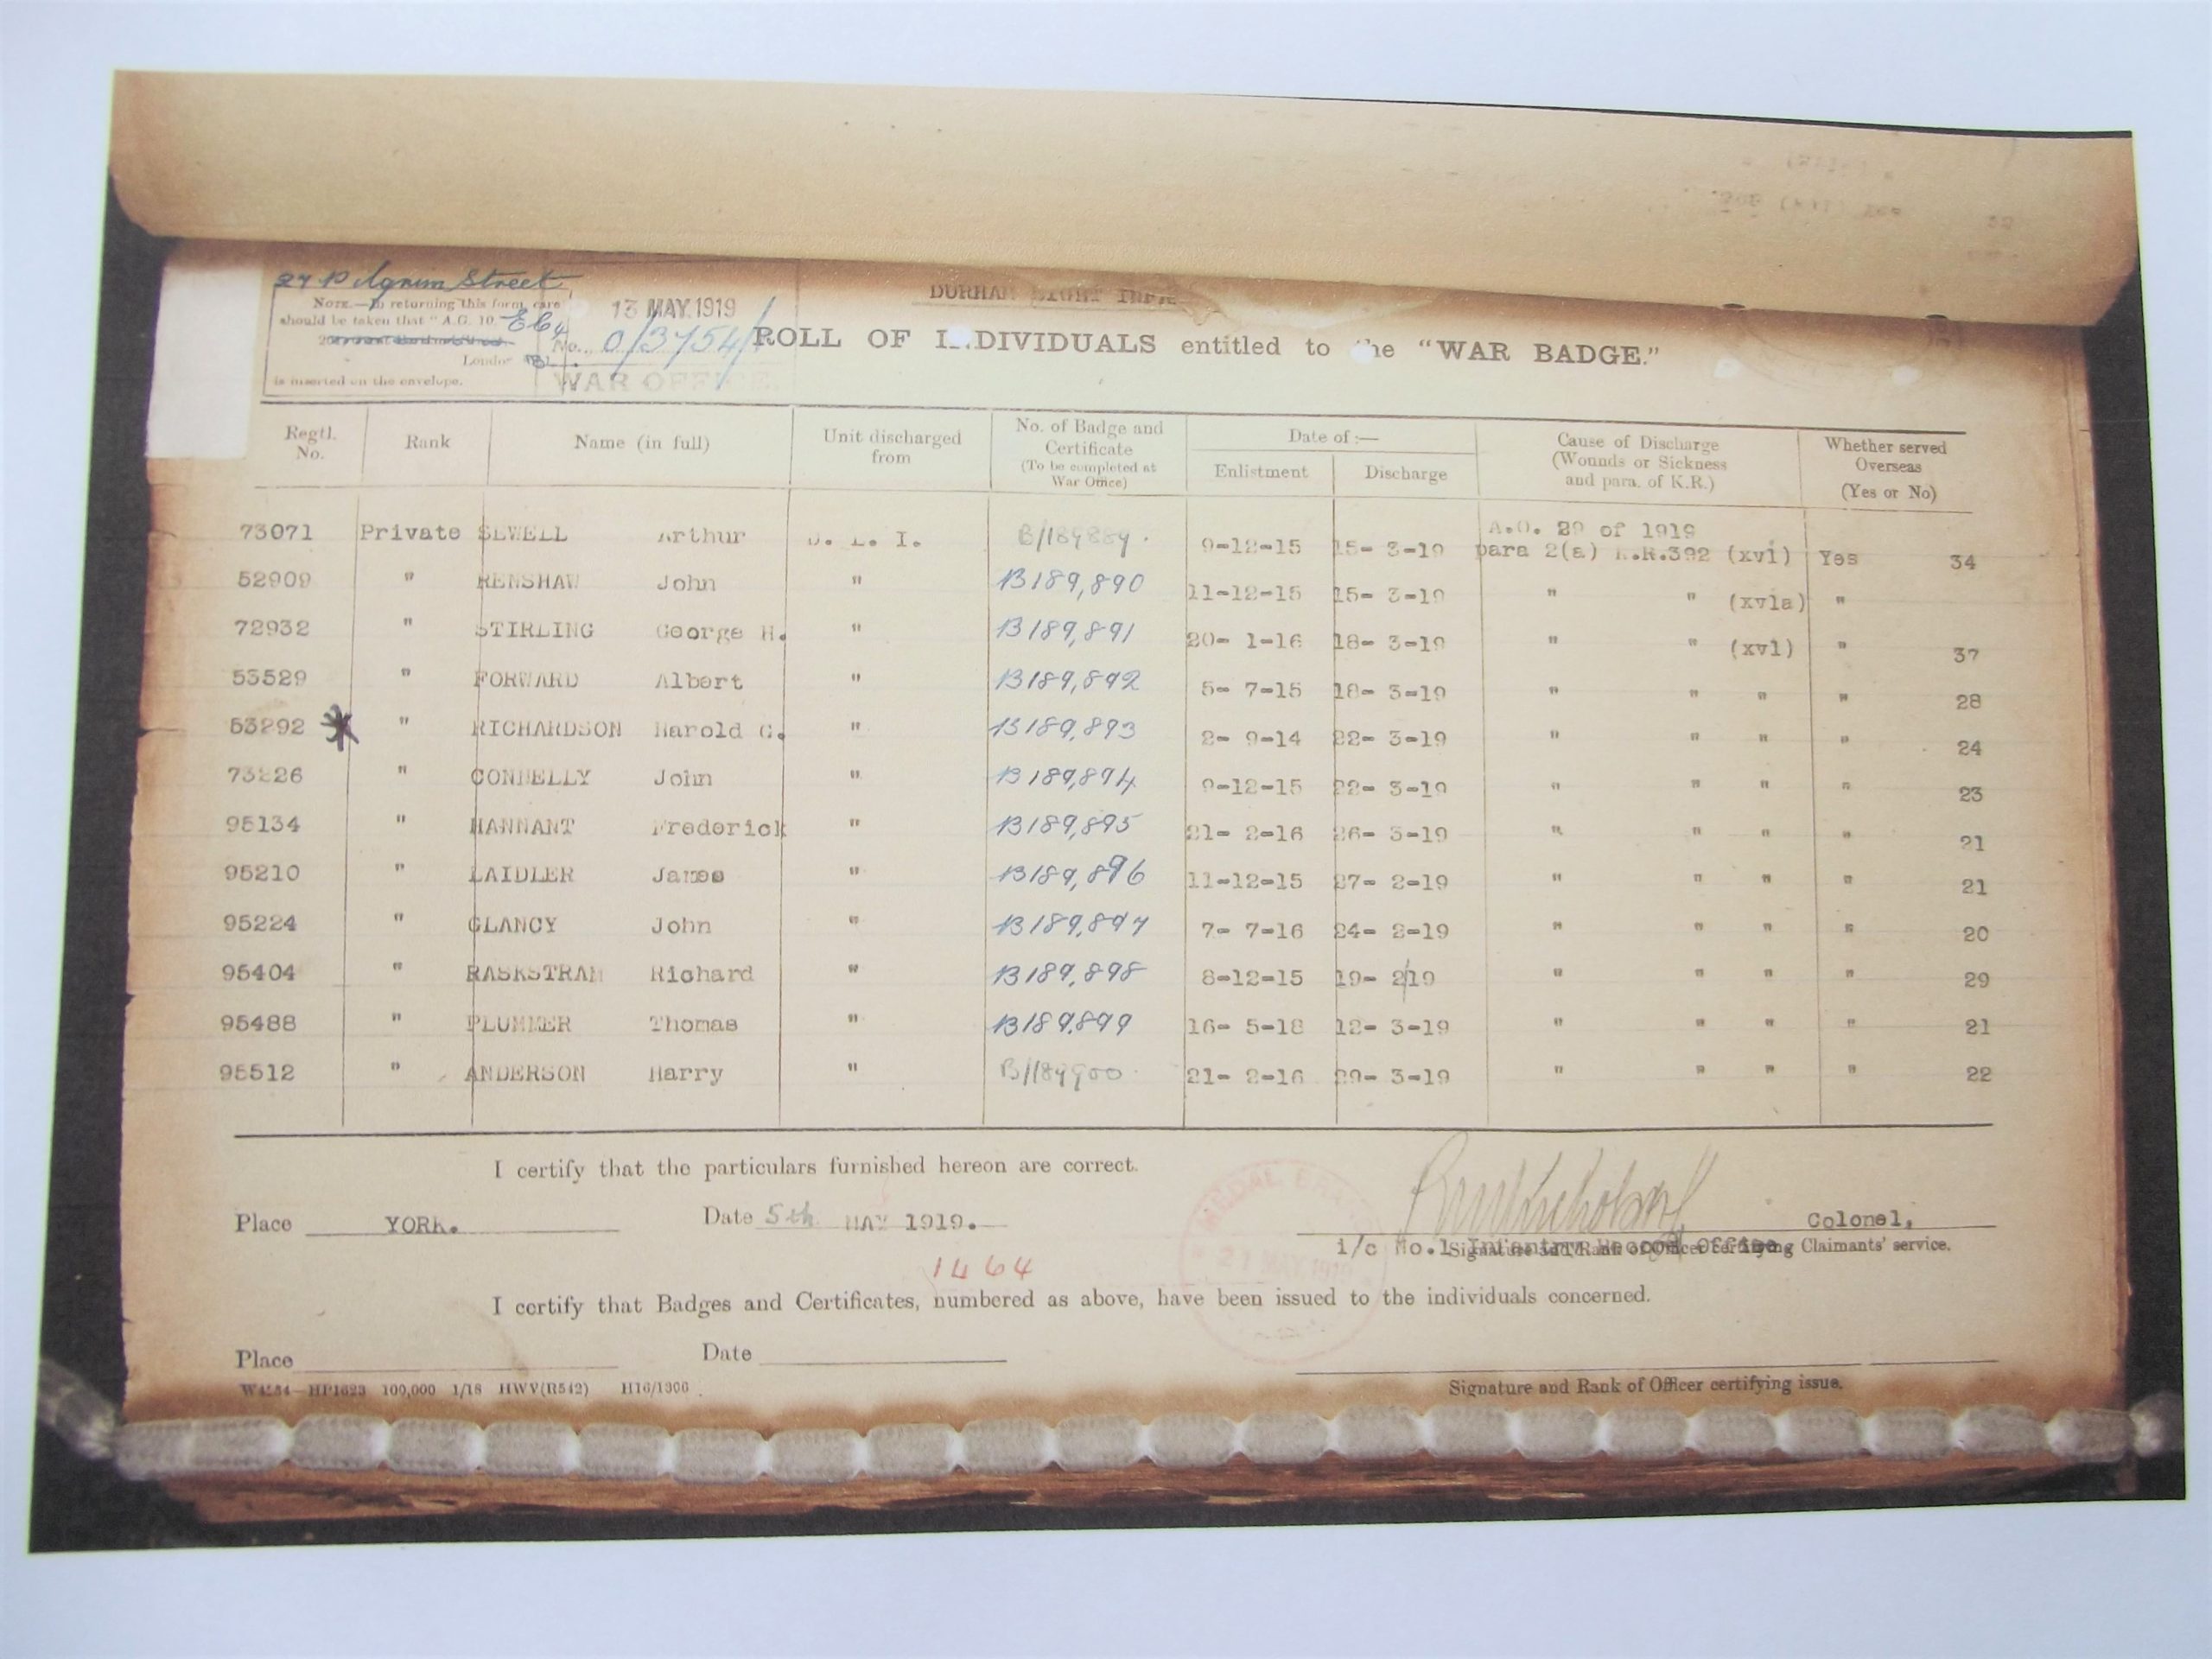 27 Pilgrim Street
NOTE.—In returning this form care
should be taken that "A.G. 10.
E64
London
is inserted on the envelope.
13 MAY.1919
No. 0/3754/
WAR OFFICE.
DURHAM LIGHT INF
ROLL OF I DIVIDUALS entitled to he "WAR BADGE."
Regtl. No. Rank Name (in full) Unit discharged from No. of Badge and Certificate (To be completed at War Office) Date of :— Enlistment Discharge Cause of Discharge (Wounds or Sickness and para. of K.R.) Whether served Overseas (Yes or No)
A.O. 29 of 1919
73071 Private SEWELL Arthur D. L. I. B/189889. 9-12-15 15- 3-19 para 2(a) K.R.392 (xvi) Yes 34
52909 " RENSHAW John " B189,890 11-12-15 15- 3-19 " " (xvia) "
72932 " STIRLING George H. " B189,891 20- 1-16 18- 3-19 " " (xvi) " 37
53529 " FORWARD Albert " B189,892 5- 7-15 18- 3-19 " " " " 28
53292 " RICHARDSON Harold G. " B189,893 2- 9-14 22- 3-19 " " " " 24
73226 " CONNELLY John " B189,894 9-12-15 22- 3-19 " " " " 23
95134 " HANNANT Frederick " B189,895 21- 2-16 26- 3-19 " " " " 21
95210 " LAIDLER James " B189,896 11-12-15 27- 2-19 " " " " 21
95224 " GLANCY John " B189,897 7- 7-16 24- 2-19 " " " " 20
95404 " RASKSTRAN Richard " B189,898 8-12-15 19- 2/19 " " " " 29
95488 " PLUMMER Thomas " B189.899 16- 5-18 12- 3-19 " " " " 21
95512 " ANDERSON Harry " B/189900. 21- 2-16 29- 3-19 " " " " 22
I certify that the particulars furnished hereon are correct.
Place YORK. Date 5th MAY 1919. Colonel,
i/c No.1 Infantry Record Office
Signature and Rank of Officer certifying Claimants' service.
MEDAL
21 MAY 1919
1464
I certify that Badges and Certificates, numbered as above, have been issued to the individuals concerned.
Place Date
W4254—HP1623 100,000 1/18 HWV(R542) H16/1300
Signature and Rank of Officer certifying issue.